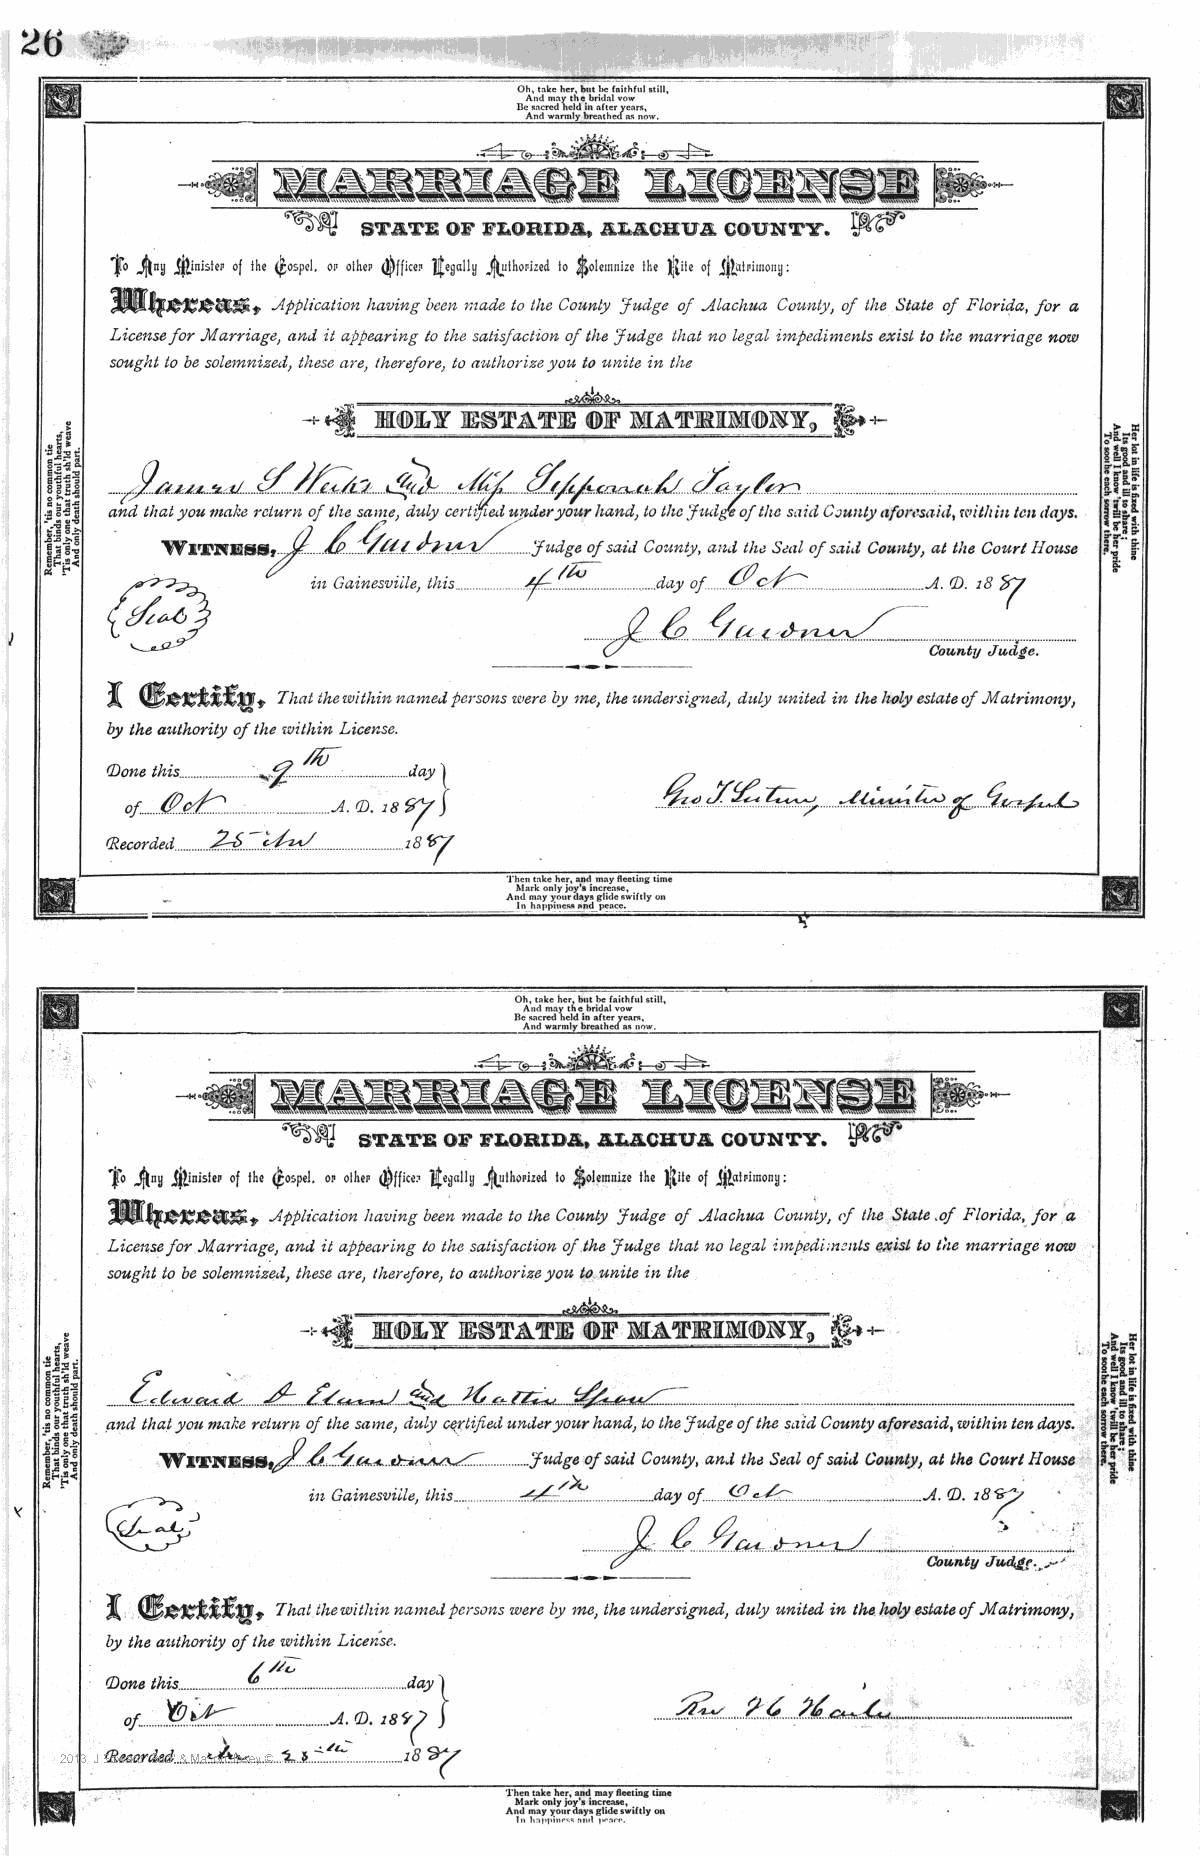 26
Oh, take her, but be faithful still,
And may the bridal vow
Be sacred held in after years,
And warmly breathed as now.
MARRIAGE LICENSE
STATE OF FLORIDA, ALACHUA COUNTY.
To Any Minister of the Gospel, or other Officer Legally Authorized to Solemnize the Rite of Matrimony:
Whereas, Application having been made to the County Judge of Alachua County, of the State of Florida, for a
License for Marriage, and it appearing to the satisfaction of the Judge that no legal impediments exist to the marriage now
sought to be solemnized, these are, therefore, to authorize you to unite in the
HOLY ESTATE OF MATRIMONY,
James S Weeks and Miss Sepporah Taylor
and that you make return of the same, duly certified under your hand, to the Judge of the said County aforesaid, within ten days.
WITNESS, J C Gardner Judge of said County, and the Seal of said County, at the Court House
in Gainesville, this 4th day of Oct A. D. 1887
Seal
J C Gardner
County Judge.
I Certify, That the within named persons were by me, the undersigned, duly united in the holy estate of Matrimony,
by the authority of the within License.
Done this 9th day
of Oct A. D. 1887
Geo T. Minister of Gospel
Recorded 25 1887
Remember, 'tis no common tie
That binds our youthful hearts,
'Tis only one that truth sh'ld weave
And only death should part.
Her lot in life is fixed with thine
Its good and ill to share;
And well I know 'twill be her pride
To soothe each sorrow there.
Then take her, and may fleeting time
Mark only joy's increase,
And may your days glide swiftly on
In happiness and peace.
Oh, take her, but be faithful still,
And may the bridal vow
Be sacred held in after years,
And warmly breathed as now.
MARRIAGE LICENSE
STATE OF FLORIDA, ALACHUA COUNTY.
To Any Minister of the Gospel, or other Officer Legally Authorized to Solemnize the Rite of Matrimony:
Whereas, Application having been made to the County Judge of Alachua County, of the State of Florida, for a
License for Marriage, and it appearing to the satisfaction of the Judge that no legal impediments exist to the marriage now
sought to be solemnized, these are, therefore, to authorize you to unite in the
HOLY ESTATE OF MATRIMONY,
Edward D Elam and Hattie Spaw
and that you make return of the same, duly certified under your hand, to the Judge of the said County aforesaid, within ten days.
WITNESS, J C Gardner Judge of said County, and the Seal of said County, at the Court House
in Gainesville, this 4th day of Oct A. D. 1887
Seal
J C Gardner
County Judge.
I Certify, That the within named persons were by me, the undersigned, duly united in the holy estate of Matrimony,
by the authority of the within License.
Done this 6th day
of Oct A. D. 1887
Rev H Haile
Recorded 25th 1887
Remember, 'tis no common tie
That binds our youthful hearts,
'Tis only one that truth sh'ld weave
And only death should part.
Her lot in life is fixed with thine
Its good and ill to share;
And well I know 'twill be her pride
To soothe each sorrow there.
Then take her, and may fleeting time
Mark only joy's increase,
And may your days glide swiftly on
In happiness and peace.